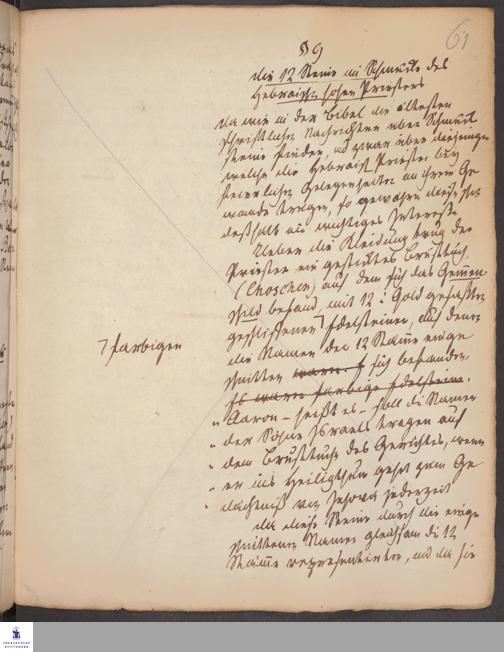 61
§ 9
die 12 Steine im Schmucke des
Hebraisch. hohen Priesters
Da wir in der Bibel die ältesten
schriftlichen Nachrichten über Schmuck
steine finden, und zwar über diejenigen
welche die Hebraisch. Priester bey
feierlichen Gelegenheiten an ihrem Ge
wande trugen, so gewähren diese
deßhalb ein wichtiges Interesse
Ueber die Kleidung trug der
Priester ein gesticktes Brusttuch,
(Choschen) auf dem sich das Gemmen-
schild befand, mit 12 in Gold gefaßten
geschliffenen ⁊ Edelsteinen, auf denen
⁊ farbigen
die Namen der 12 Stämme einge
schnitten waren. sich befanden.
Es waren farbige Edelsteine.
„ Aaron – heißt es – soll die Namen
„ der Söhne Israels tragen auf
„ dem Brusttuche des Gerichtes, wenn
„ er ins Heiligthum geht zum Ge
„ dächtniß vor Jehova jederzeit
da diese Steine durch die einge
schnittenen Namen gleichsam die 12
Stämme repräsentirten, und da sie
FRANCKESCHE
STIFTUNGEN